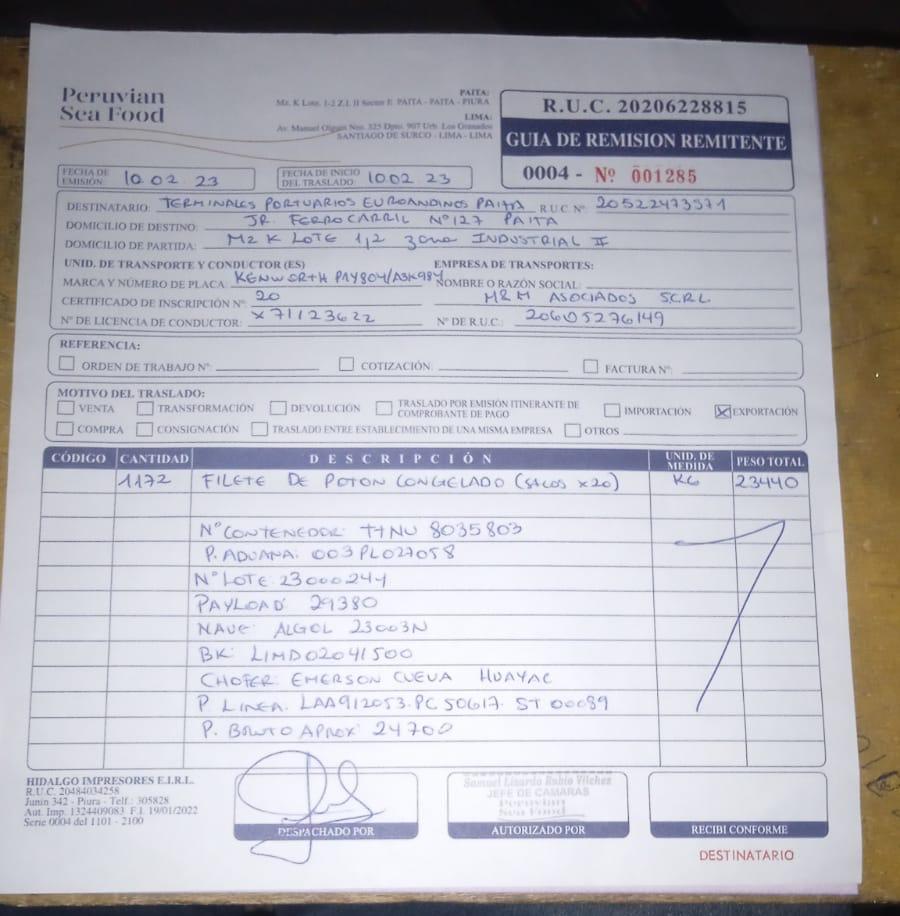 Peruvian
Sea Food
PAITA:
Mz. K Lote. 1-2 Z.I. II Sector E PAITA - PAITA - PIURA
LIMA:
Av. Manuel Olguin Nro. 325 Dpto. 907 Urb. Los Granados
SANTIAGO DE SURCO - LIMA - LIMA
R.U.C. 20206228815
GUIA DE REMISION REMITENTE
0004 - Nº 001285
FECHA DE EMISIÓN: 10 02 23
FECHA DE INICIO DEL TRASLADO: 10 02 23
DESTINATARIO: TERMINALES PORTUARIOS EUROANDINOS PAITA R.U.C Nº 20522473571
DOMICILIO DE DESTINO: JR. FERROCARRIL Nº 127 PAITA
DOMICILIO DE PARTIDA: MZ K LOTE 1,2 zona INDUSTRIAL II
UNID. DE TRANSPORTE Y CONDUCTOR (ES) EMPRESA DE TRANSPORTES:
MARCA Y NÚMERO DE PLACA: KENWORTH PAY804/A3K984 NOMBRE O RAZÓN SOCIAL:
CERTIFICADO DE INSCRIPCIÓN Nº 20 M2M ASOCIADOS SCRL
Nº DE LICENCIA DE CONDUCTOR: X71123622 Nº DE R.U.C.: 20605276149
REFERENCIA:
ORDEN DE TRABAJO Nº: COTIZACIÓN: FACTURA Nº:
MOTIVO DEL TRASLADO:
VENTA TRANSFORMACIÓN DEVOLUCIÓN TRASLADO POR EMISIÓN ITINERANTE DE COMPROBANTE DE PAGO IMPORTACIÓN X EXPORTACIÓN
COMPRA CONSIGNACIÓN TRASLADO ENTRE ESTABLECIMIENTO DE UNA MISMA EMPRESA OTROS
CÓDIGO CANTIDAD DESCRIPCIÓN UNID. DE MEDIDA PESO TOTAL
1172 FILETE DE POTON CONGELADO (SACOS x20) KG 23440
Nº CONTENEDOR: TTNU 8035803
P. ADUANA: 003PL027058
Nº LOTE: 23000244
PAYLOAD: 29380
NAVE: ALGOL 23003N
BK: LIMD02041500
CHOFER: EMERSON CUEVA HUAYAC
P LINEA: LAA912053. PC 50617. ST 00089
P. BRUTO APROX: 24700
HIDALGO IMPRESORES E.I.R.L.
R.U.C. 20484034258
Junín 342 - Piura - Telf.: 305828
Aut. Imp. 1324409083 F.I. 19/01/2022
Serie 0004 del 1101 - 2100
DESPACHADO POR
Samuel Lisardo Rubio Vilchez
JEFE DE CAMARAS
Peruvian
Sea Food
AUTORIZADO POR
RECIBI CONFORME
DESTINATARIO